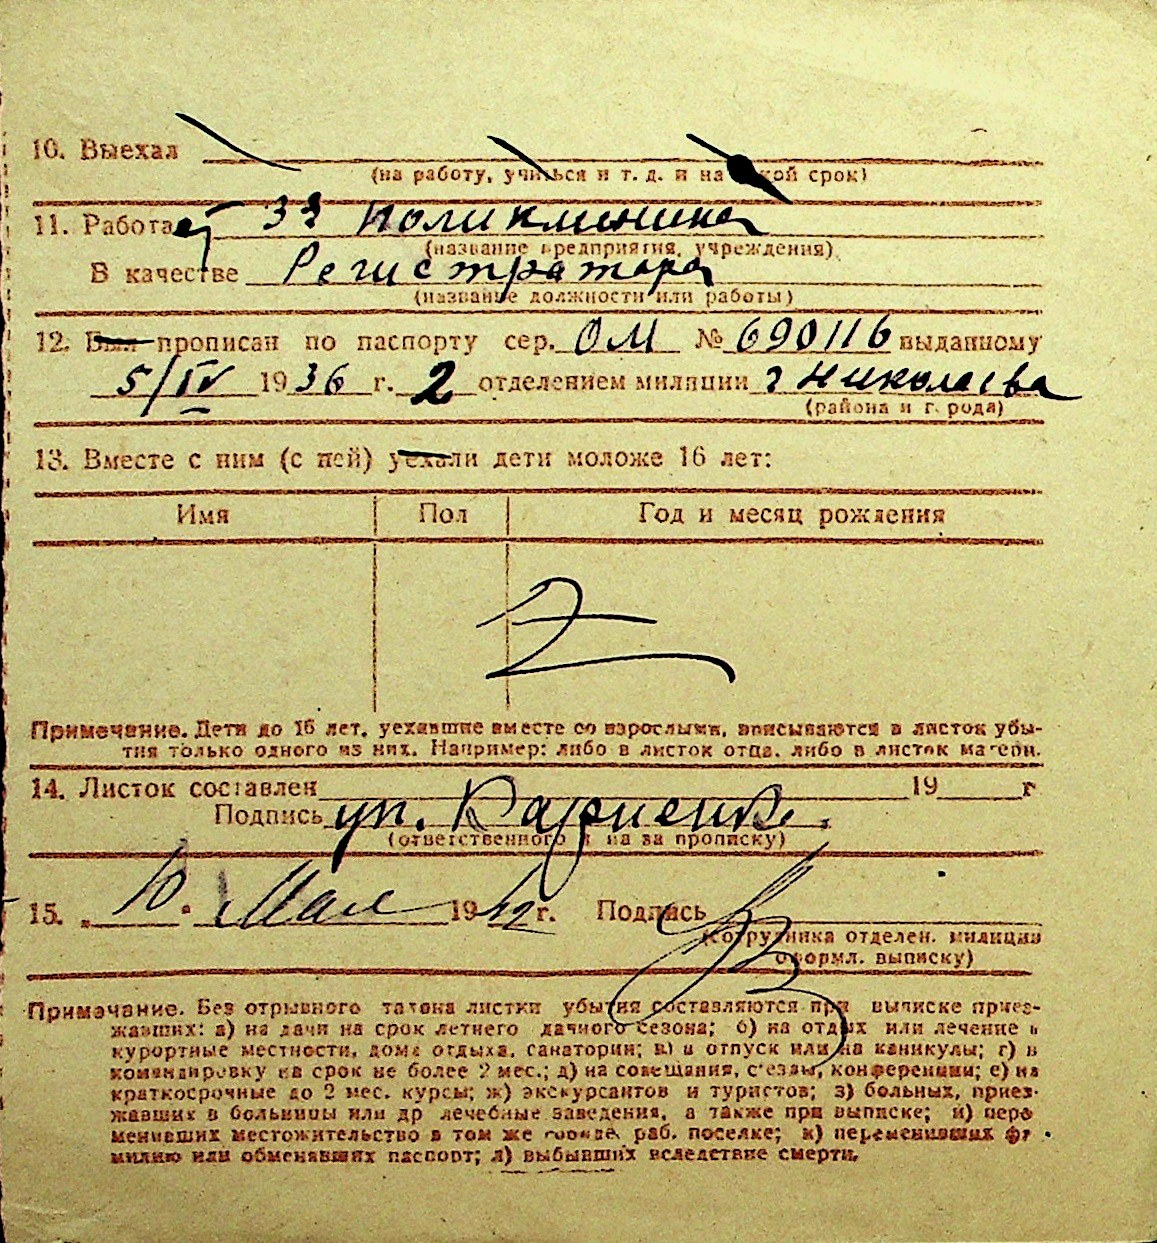 10. Выехал
(на работу, учиться и т. д. и на кой срок)
11. Работает 33 поликлиника
(название предприятия, учреждения)
В качестве Регистратора
(название должности или работы)
12. Был прописан по паспорту сер. ОМ № 690116 выданному
5/IV 1936 г. 2 отделением милиции г Николаева
(района и города)
13. Вместе с ним (с ней) уехали дети моложе 16 лет:
Имя Пол Год и месяц рождения
Примечание. Дети до 16 лет, уехавшие вместе со взрослыми, вписываются в листок убы-
тия только одного из них. Например: либо в листок отца, либо в листок матери.
14. Листок составлен 19 г
Подпись уп.
(ответственного на за прописку)
15. „ 10 " Мая 1942 г. Подпись
(сотрудника отделен. милиции
оформл. выписку)
Примечание. Без отрывного талона листки убытия составляются при выписке приез-
жавших: а) на дачи на срок летнего дачного сезона; б) на отдых или лечение в
курортные местности, дома отдыха, санатории; в) в отпуск или на каникулы; г) в
командировку на срок не более 2 мес.; д) на совещания, съезды, конференции; е) на
краткосрочные до 2 мес. курсы; ж) экскурсантов и туристов; з) больных, приез-
жавших в больницы или др лечебные заведения, а также при выписке; и) пере
менивших местожительство в том же городе, раб. поселке; к) переменивших фа
милию или обменявших паспорт; л) выбывших вследствие смерти.